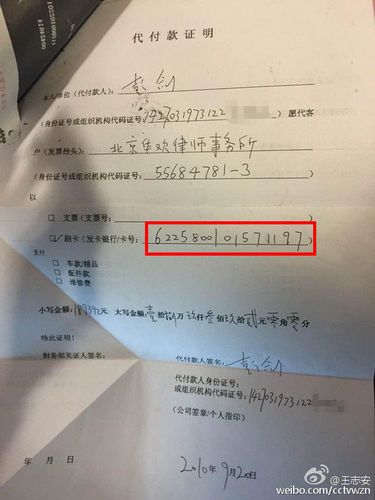 代付款证明
本人/单位（代付款人）：彭剑
（身份证号或组织机构代码证号：1427031973122 ）愿代客
户（发票抬头）：北京 律师事务所
（身份证号或组织机构代码证号：55684781-3 ）
以
□ 支票（支票号： ）
☑ 刷卡（发卡银行/卡号：6225800101571197）
支付
□ 车款/精品
□ 配件款
□ 维修费
小写金额： 元 大写金额：壹拾 万玖仟叁佰玖拾贰元零角零分
特此证明！
财务部见证人签名：
代付款人签名：彭剑
代付款人身份证号：
或组织机构代码证号：1427031973122
（公司签章/个人指印）
年 月 日
2010年9月20日
@王志安
weibo.com/cctvwzn